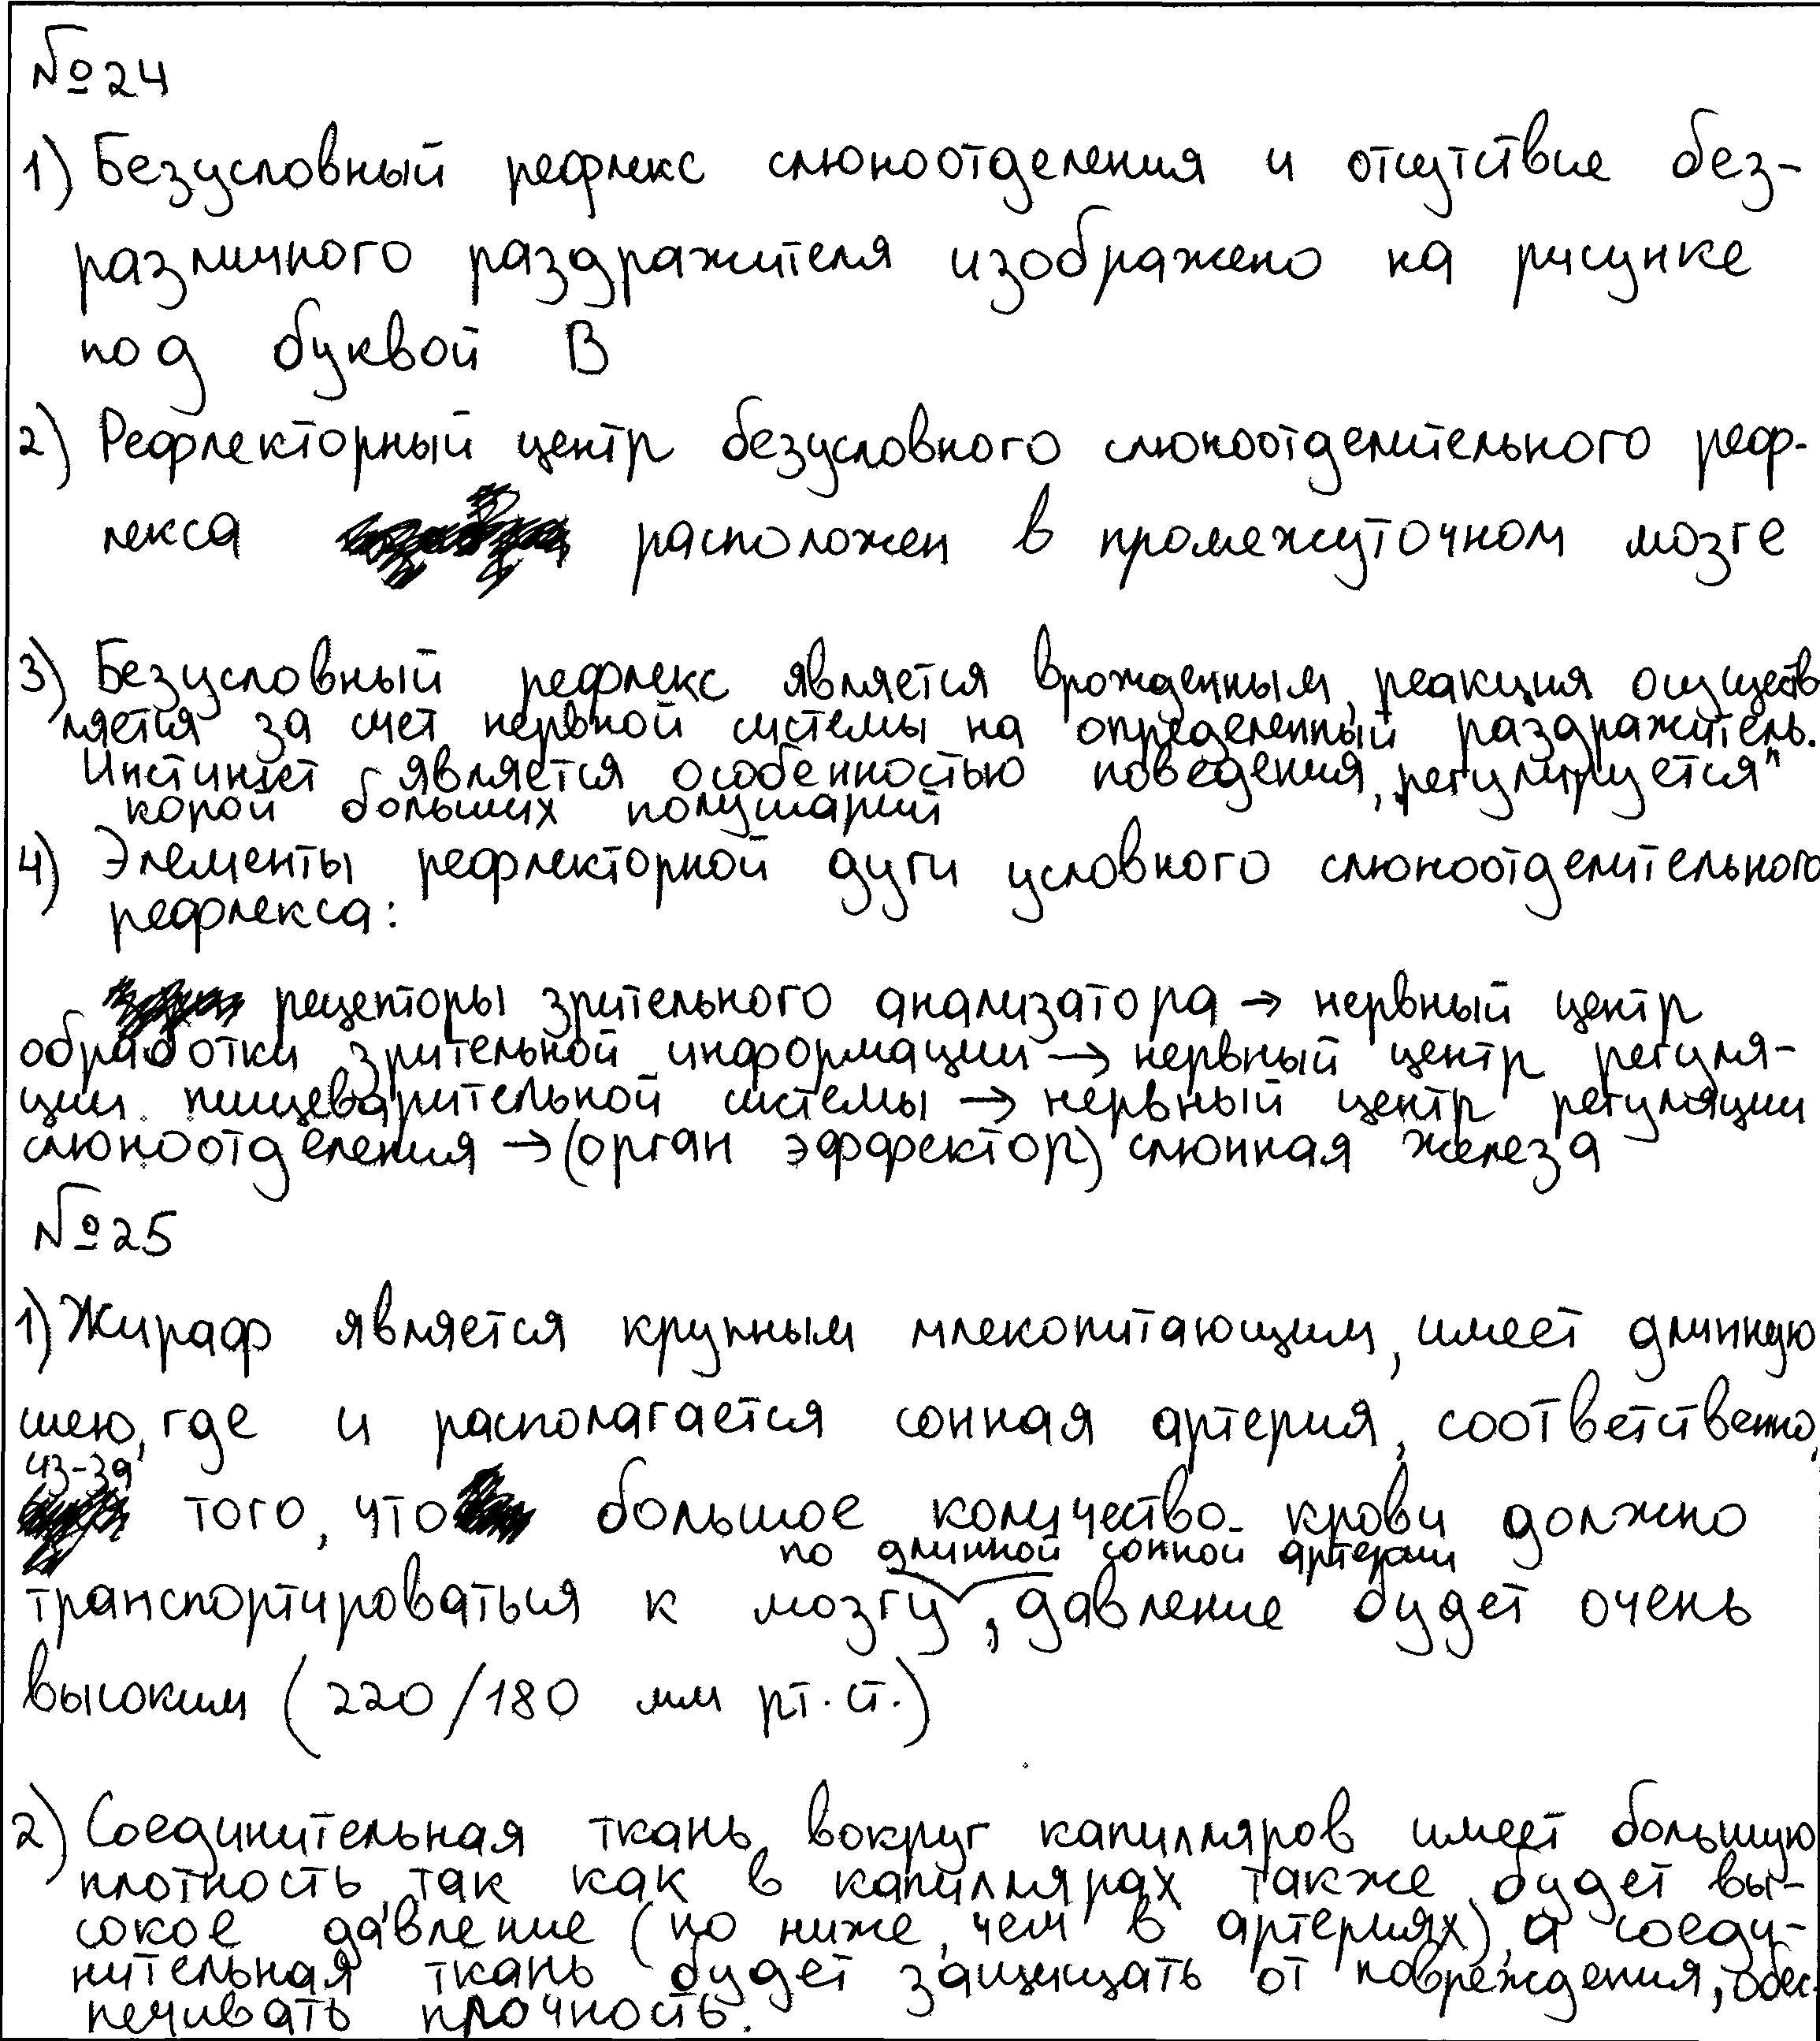 №24
1) Безусловный рефлекс слюноотделения и отсутствие без-
различного раздражителя изображено на рисунке
под буквой В
2) Рефлекторный центр безусловного слюноотделительного реф-
лекса расположен в промежуточном мозге
3) Безусловный рефлекс является врожденным, реакция осуществ
ляется за счет нервной системы на определенный раздражитель.
Инстинкт является особенностью поведения, регулируется
корой больших полушарий
4) Элементы рефлекторной дуги условного слюноотделительного
рефлекса:
рецепторы зрительного анализатора → нервный центр
обработки зрительной информации → нервный центр регуля-
ции пищеварительной системы → нервный центр регуляции
слюноотделения → (орган эффектор) слюнная железа
№25
1) Жираф является крупным млекопитающим, имеет длинную
шею, где и располагается сонная артерия, соответственно,
из-за
того, что большое количество крови должно
по длинной сонной артерии
транспортироваться к мозгу, давление будет очень
высоким (220/180 мм рт.ст.)
2) Соединительная ткань вокруг капилляров имеет большую
плотность, так как в капиллярах также будет вы-
сокое давление (но ниже, чем в артериях), а соеди-
нительная ткань будет защищать от повреждения, обес-
печивать прочность.